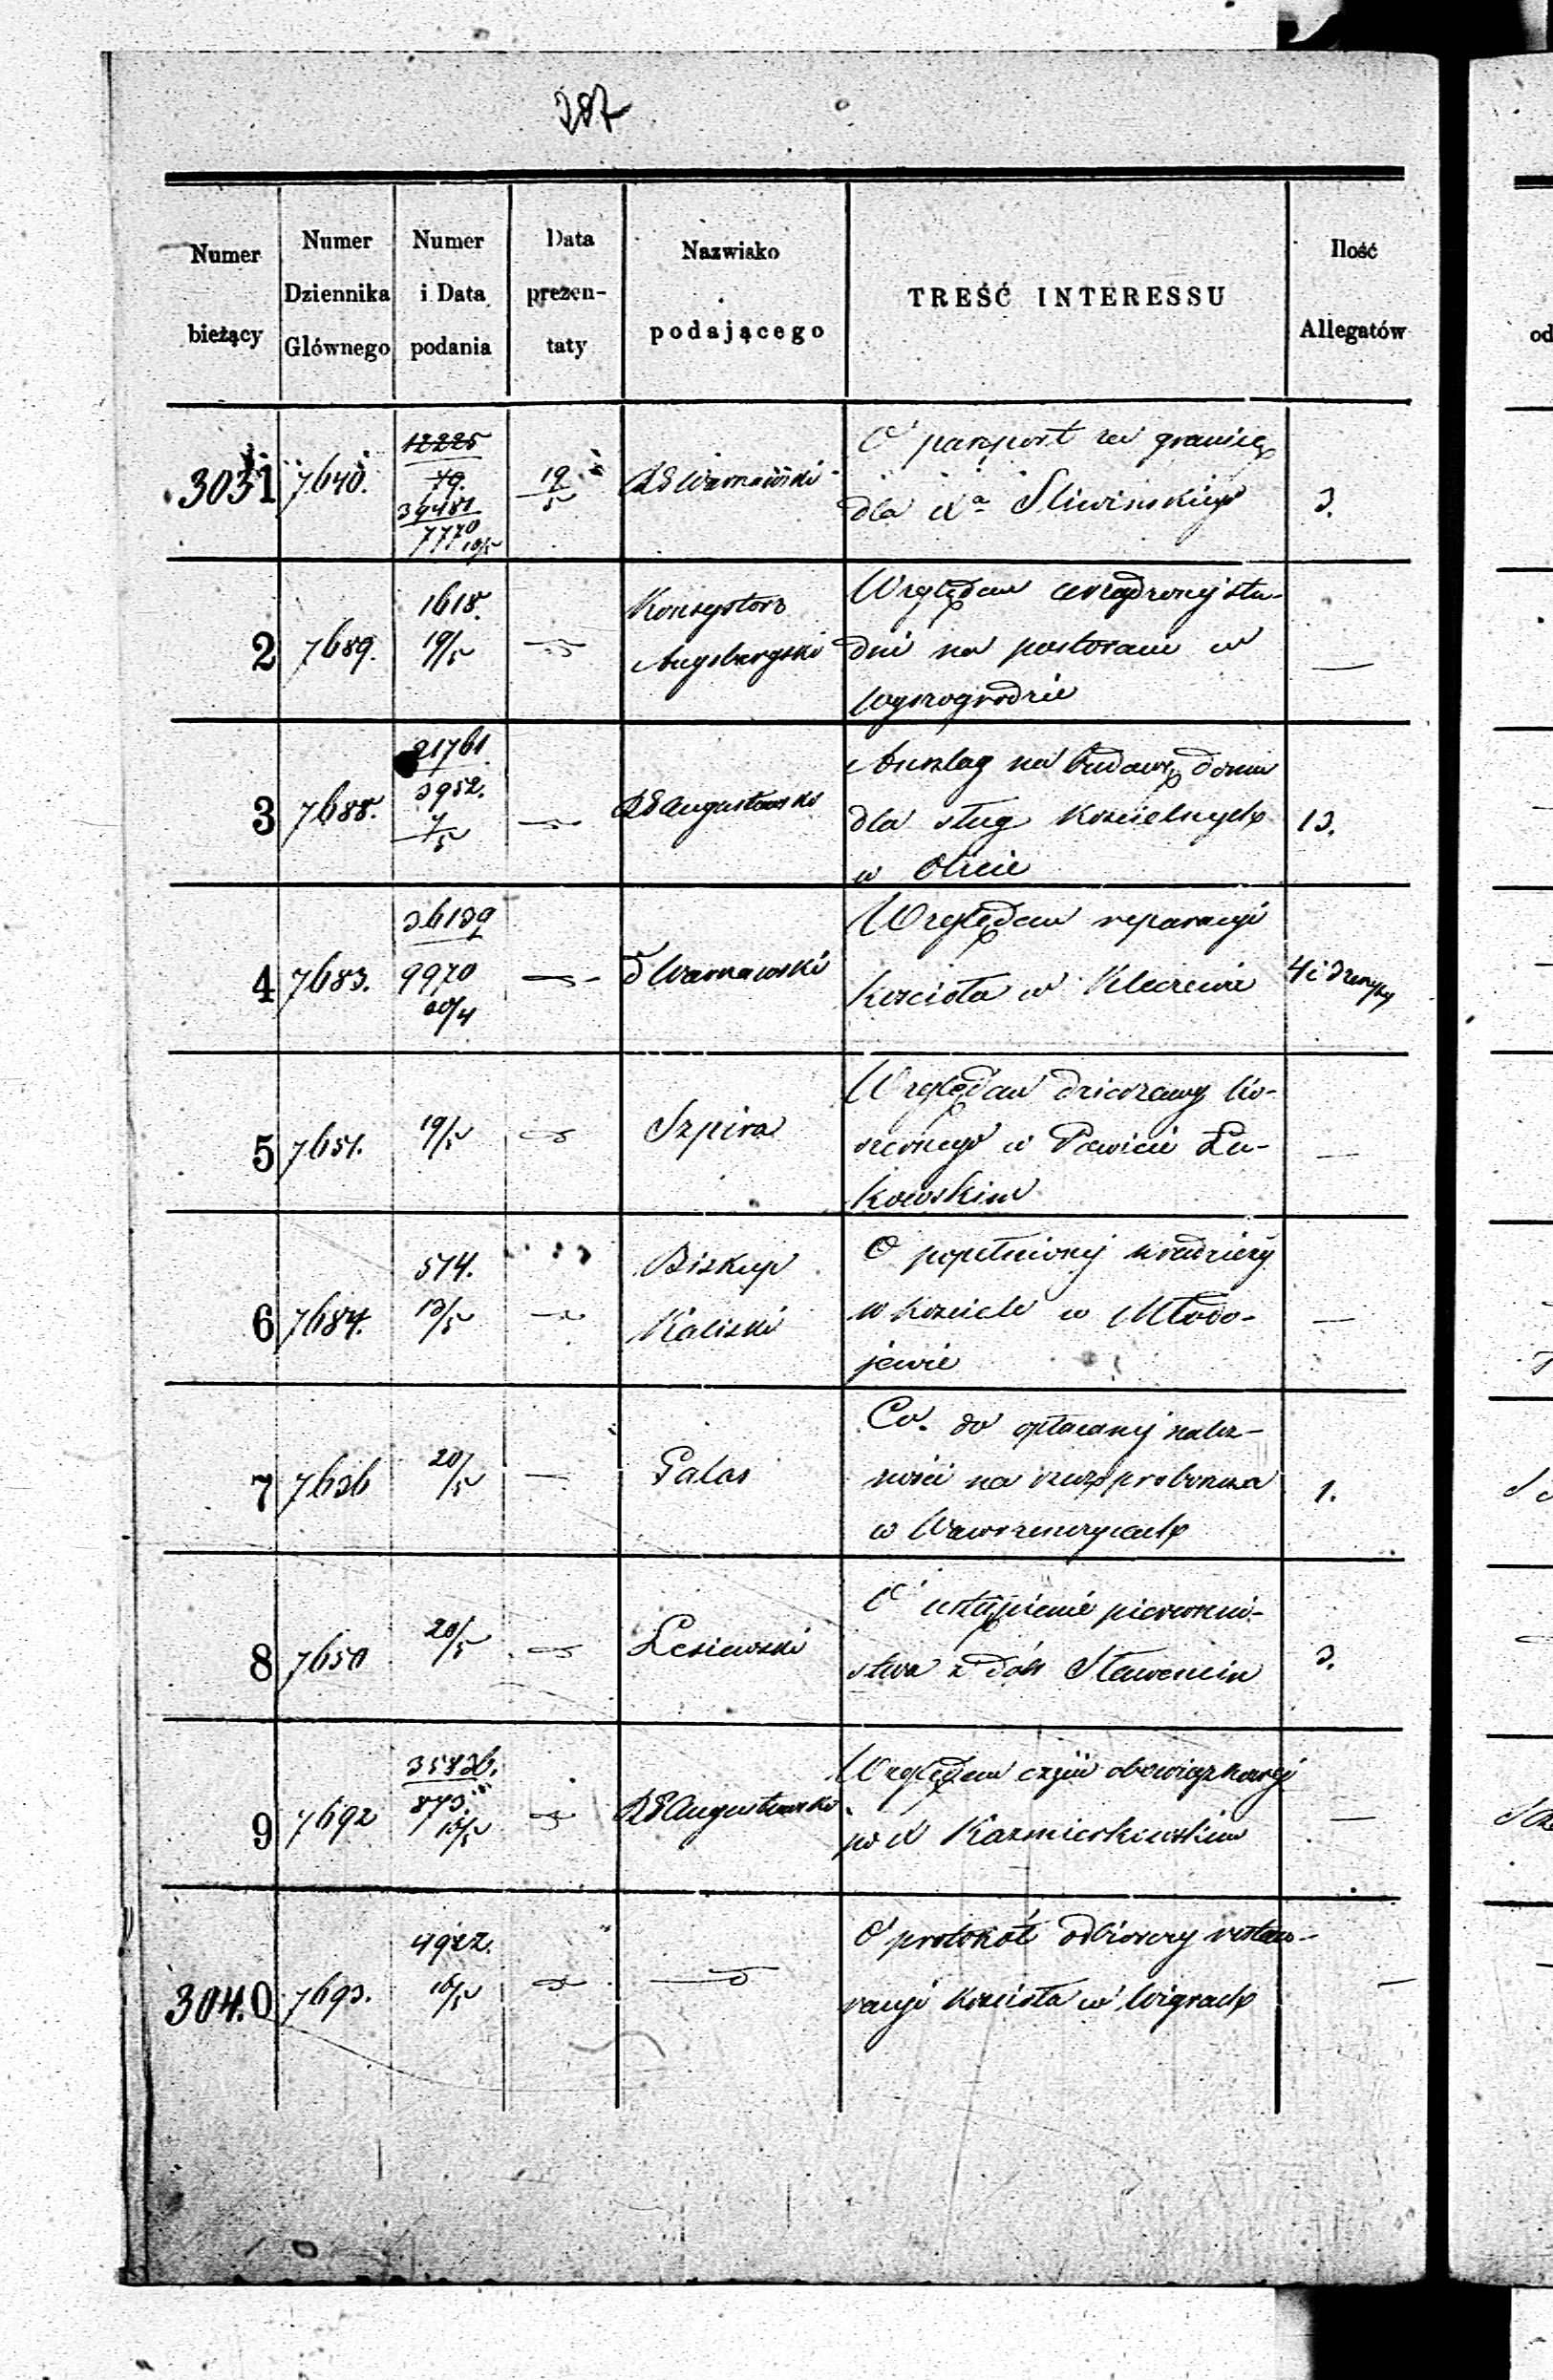 287
Numer bieżący | Numer Dziennika Głównego | Numer i Data podania | Data prezen-taty | Nazwisko podającego | TREŚĆ INTERESSU | Ilość Allegatów
3031 | 7640. | 12225 / 49. 39481 / 7770 10/5 | 19/5 | RG Warszawski | O paszport za granicę
dla Xa Sliwinskiego | 3.
2 | 7689. | 1618. 19/5 | Konsystorz Augsburgski | Względem urządzonej stu-
dni na pastoracie w
Wyszogrodzie | —
3 | 7688. | 21761. / 3952. 4/5 | RG Augustowski | Anszlag na budowę domu
dla sług Kościelnych | 13.
w Olicie
4 | 7683. | 36139 / 9970 20/4 | Warszawski | Względem reparacyi
kościoła w Kleczewie | 4 i
5 | 7651. | 19/5 | Szpira | Względem dzierżawy Ko-
szernego w Powiecie Łu-
kowskim | —
6 | 7684. | 514. 13/5 | Biskup Kaliski | O popełnionej kradzieży
w kościele w Młodo-
jewie | —
7 | 7636 | 20/5 | — | Palas | Co do opłacanej należ-
ności na rzecz proboszcza | 1.
w Wawrzeńczycach
8 | 7650 | 20/5 | Lesiewski | O ustąpienie pierwszeń-
stwa z dóbr Sławencin | 3.
9 | 7692 | 35436. / 873. | RG Augustowski | Względem obowiązkowej
po X Kazmierkiewskim | —
3040 | 7693. | 4922. 16/5 | O protokół odbiorczy restau-
racyi kościoła w Wigrach | —
od